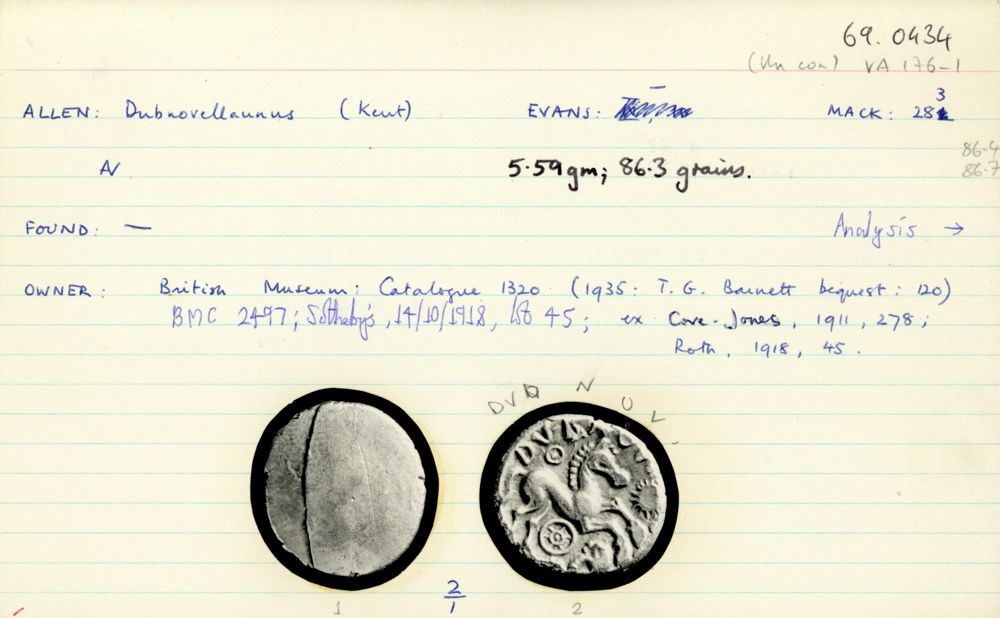 69.0434
(Un con) VA 176-1
ALLEN: Dubnovellaunus (Kent) EVANS: — MACK: 283
AV 5.59gm; 86.3 grains. 86.4
86.7
FOUND: — Analysis →
OWNER: British Museum: Catalogue 1320 (1935: T. G. Barnett bequest: 120)
BMC 2497; Sotheby's, 14/10/1918, lot 45; ex Cove-Jones, 1911, 278;
Roth, 1918, 45.
DVB N O L
DVBN
1 2/1 2